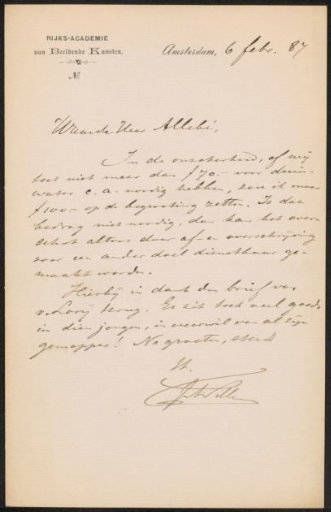 RIJKS-ACADEMIE
van Beeldende Kunsten.
No
Amsterdam, 6 febr. 87
Waarde Heer Allebé,
In de onzekerheid, of wij
toch niet meer dan f 70.- voor duin-
water c.a. noodig hebben, zou ik maar
f 100.- op de begrooting zetten. Is dat
bedrag niet noodig, dan kan het over-
schot altoos door af- en overschrijving
voor een ander doel dienstbaar ge-
maakt worden.
Hierbij in dank den brief van
v. Looij terug. Er zit toch veel goeds
in dien jongen, in weerwil van al zijn
gemopper! Na groeten, steeds